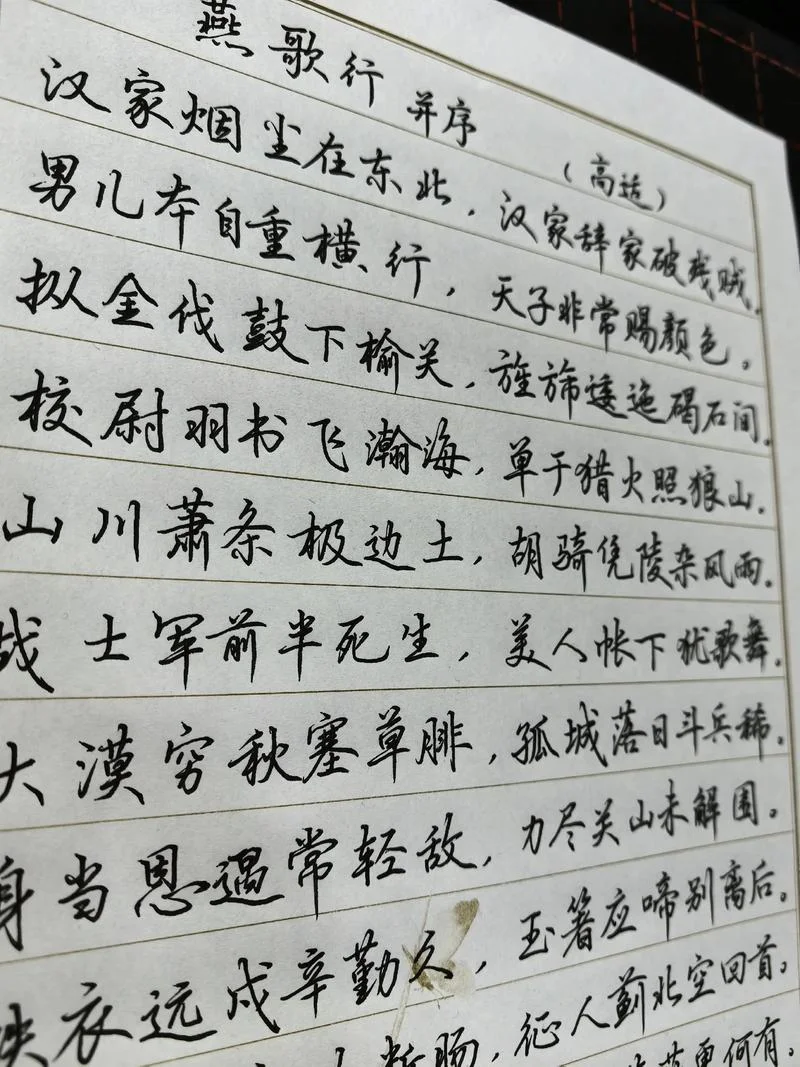 燕歌行 并序
（高适）
汉家烟尘在东北，汉家辞家破残贼。
男儿本自重横行，天子非常赐颜色。
金伐鼓下榆关，旌旆逶迤碣石间。
校尉羽书飞瀚海，单于猎火照狼山。
山川萧条极边土，胡骑凭陵杂风雨。
战士军前半死生，美人帐下犹歌舞。
大漠穷秋塞草腓，孤城落日斗兵稀。
身当恩遇常轻敌，力尽关山未解围。
铁衣远戍辛勤久，玉箸应啼别离后。
断肠，征人蓟北空回首。
更何有。